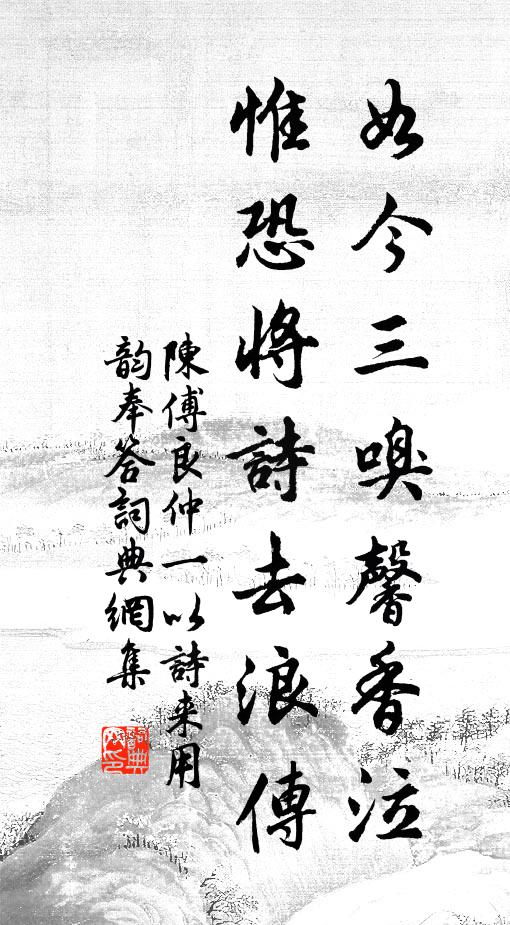 如今三嗅馨香泣
惟恐將詩去浪傳
陳傅良仲一以詩来用
韵奉答詞典網集